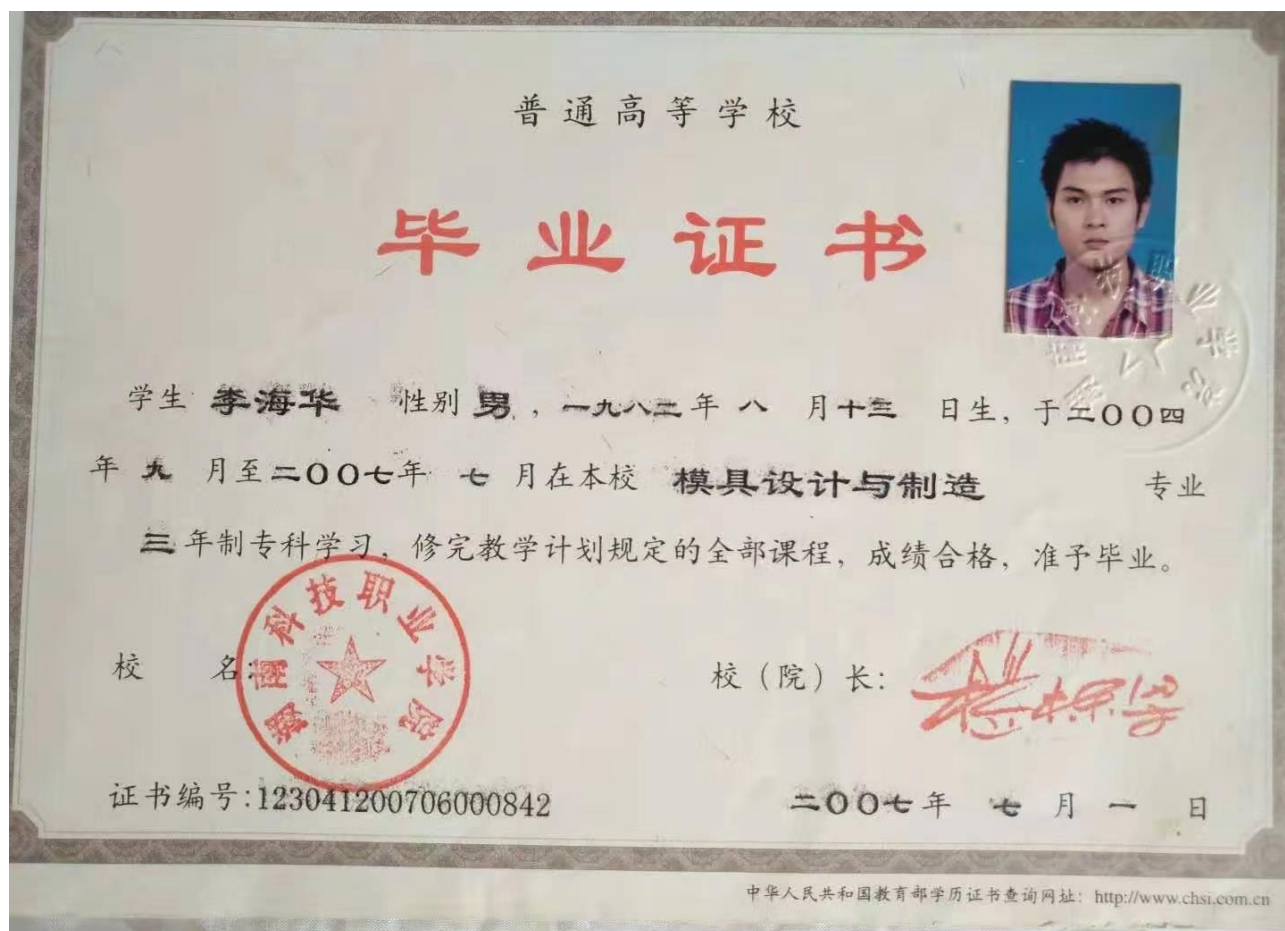 普通高等学校
毕业证书
学生 李海华 性别 男，一九八二年 八 月十三 日生，于二〇〇四
年 九 月至二〇〇七年 七 月在本校 模具设计与制造 专业
三年制专科学习，修完教学计划规定的全部课程，成绩合格，准予毕业。
校 名：
科技职业学院
校（院）长：
证书编号：123041200706000842
二〇〇七年 七 月 一 日
中华人民共和国教育部学历证书查询网址：http://www.chsi.com.cn